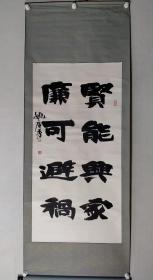 賢能興家
廉可避禍